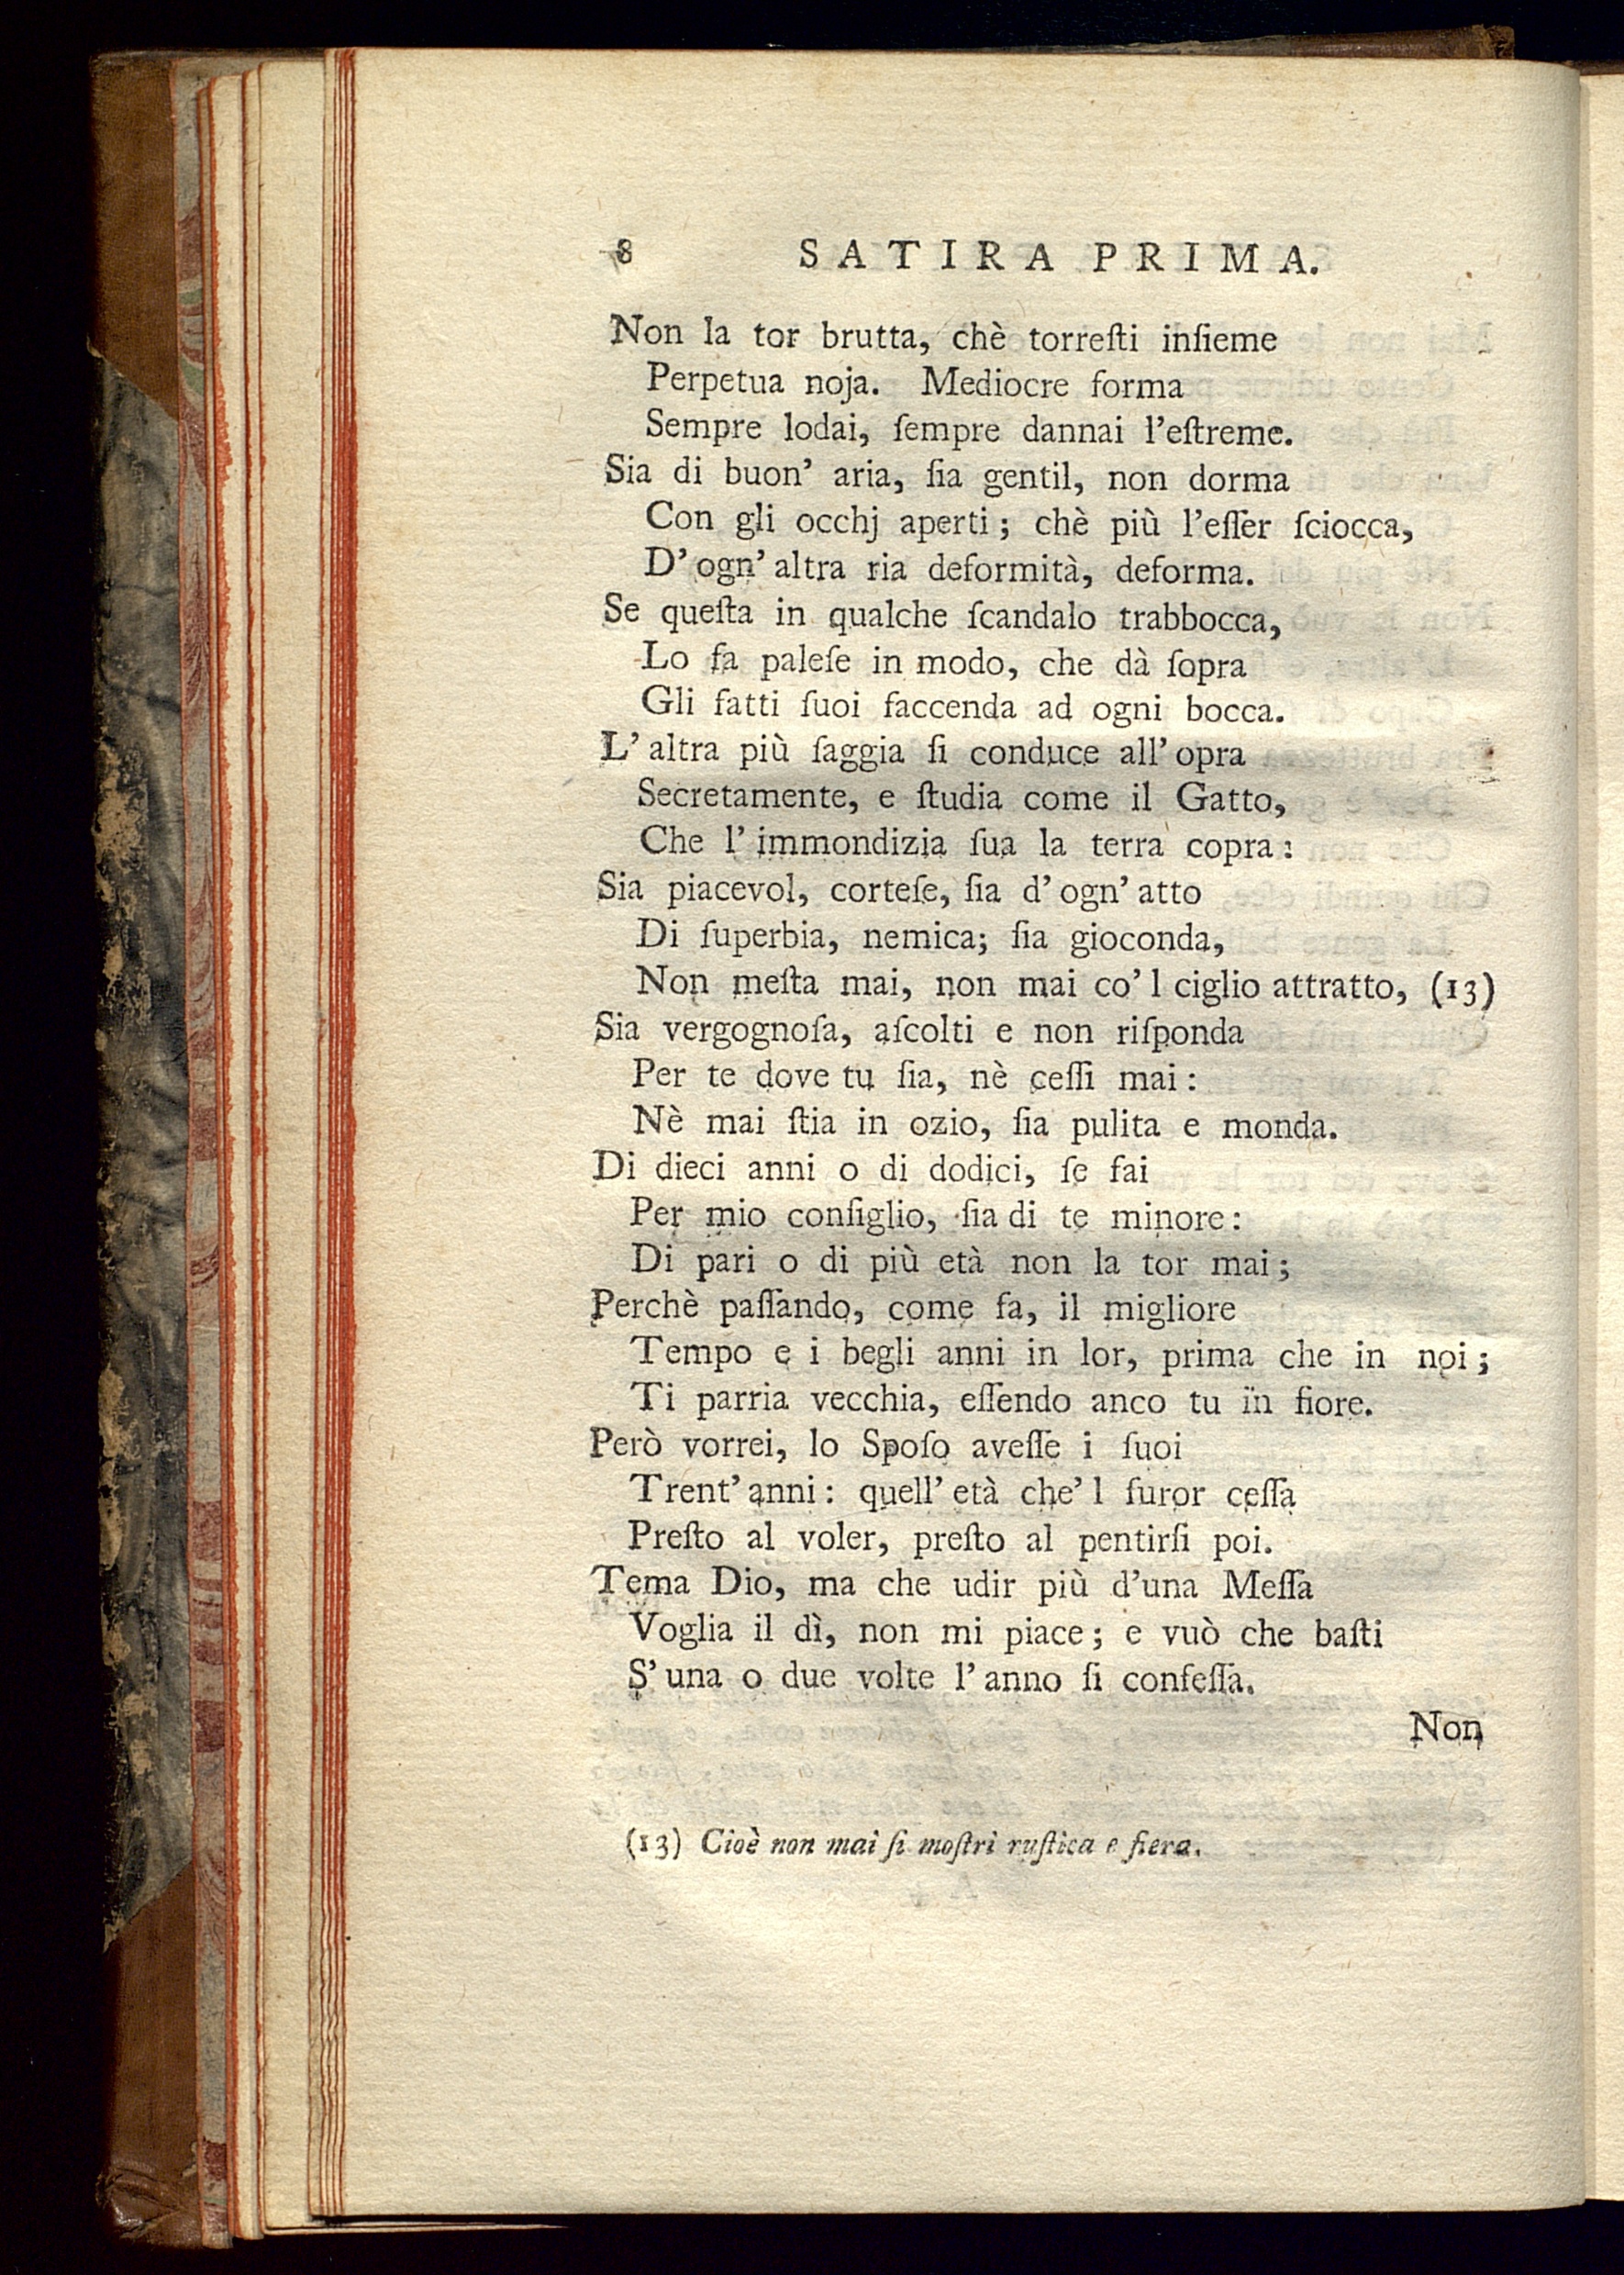 8 SATIRA PRIMA.
Non la tor brutta, chè torreſti inſieme
Perpetua noja. Mediocre forma
Sempre lodai, ſempre dannai l'eſtreme.
Sia di buon' aria, ſia gentil, non dorma
Con gli occhj aperti; chè più l'eſſer ſciocca,
D' ogn' altra ria deformità, deforma.
Se queſta in qualche ſcandalo trabbocca,
Lo fa paleſe in modo, che dà ſopra
Gli fatti ſuoi faccenda ad ogni bocca.
L' altra più ſaggia ſi conduce all' opra
Secretamente, e ſtudia come il Gatto,
Che l' immondizia ſua la terra copra:
Sia piacevol, corteſe, ſia d' ogn' atto
Di ſuperbia, nemica; ſia gioconda,
Non meſta mai, non mai co' l ciglio attratto, (13)
Sia vergognoſa, aſcolti e non riſponda
Per te dove tu ſia, nè ceſſi mai:
Nè mai ſtia in ozio, ſia pulita e monda.
Di dieci anni o di dodici, ſe fai
Per mio conſiglio, ſia di te minore:
Di pari o di più età non la tor mai;
Perchè paſſando, come fa, il migliore
Tempo e i begli anni in lor, prima che in noi;
Ti parria vecchia, eſſendo anco tu in fiore.
Però vorrei, lo Spoſo aveſſe i ſuoi
Trent' anni: quell' età che' l furor ceſſa
Preſto al voler, preſto al pentirſi poi.
Tema Dio, ma che udir più d'una Meſſa
Voglia il dì, non mi piace; e vuò che baſti
S' una o due volte l' anno ſi confeſſa.
Non
(13) Cioè non mai ſi moſtri ruſtica e fiera.